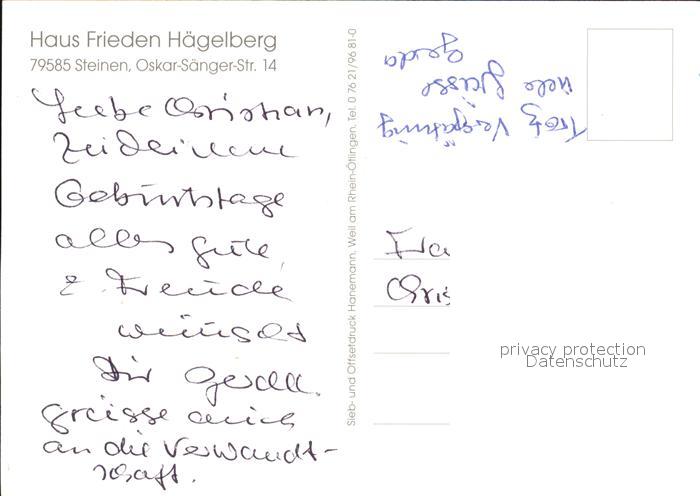 Haus Frieden Hägelberg
79585 Steinen, Oskar-Sänger-Str. 14
Liebe Christian,
Zu Deinem
Geburtstage
alles gute,
& Freude
wünscht
Dir Gerda.
Grüsse auch
an die Verwandt-
schaft.
Sieb- und Offsetdruck Hanemann, Weil am Rhein-Ötlingen, Tel. 0 76 21/96 81-0
Trotz Verspätung
viele Grüsse
Gerda
Fra
Chris
privacy protection
Datenschutz